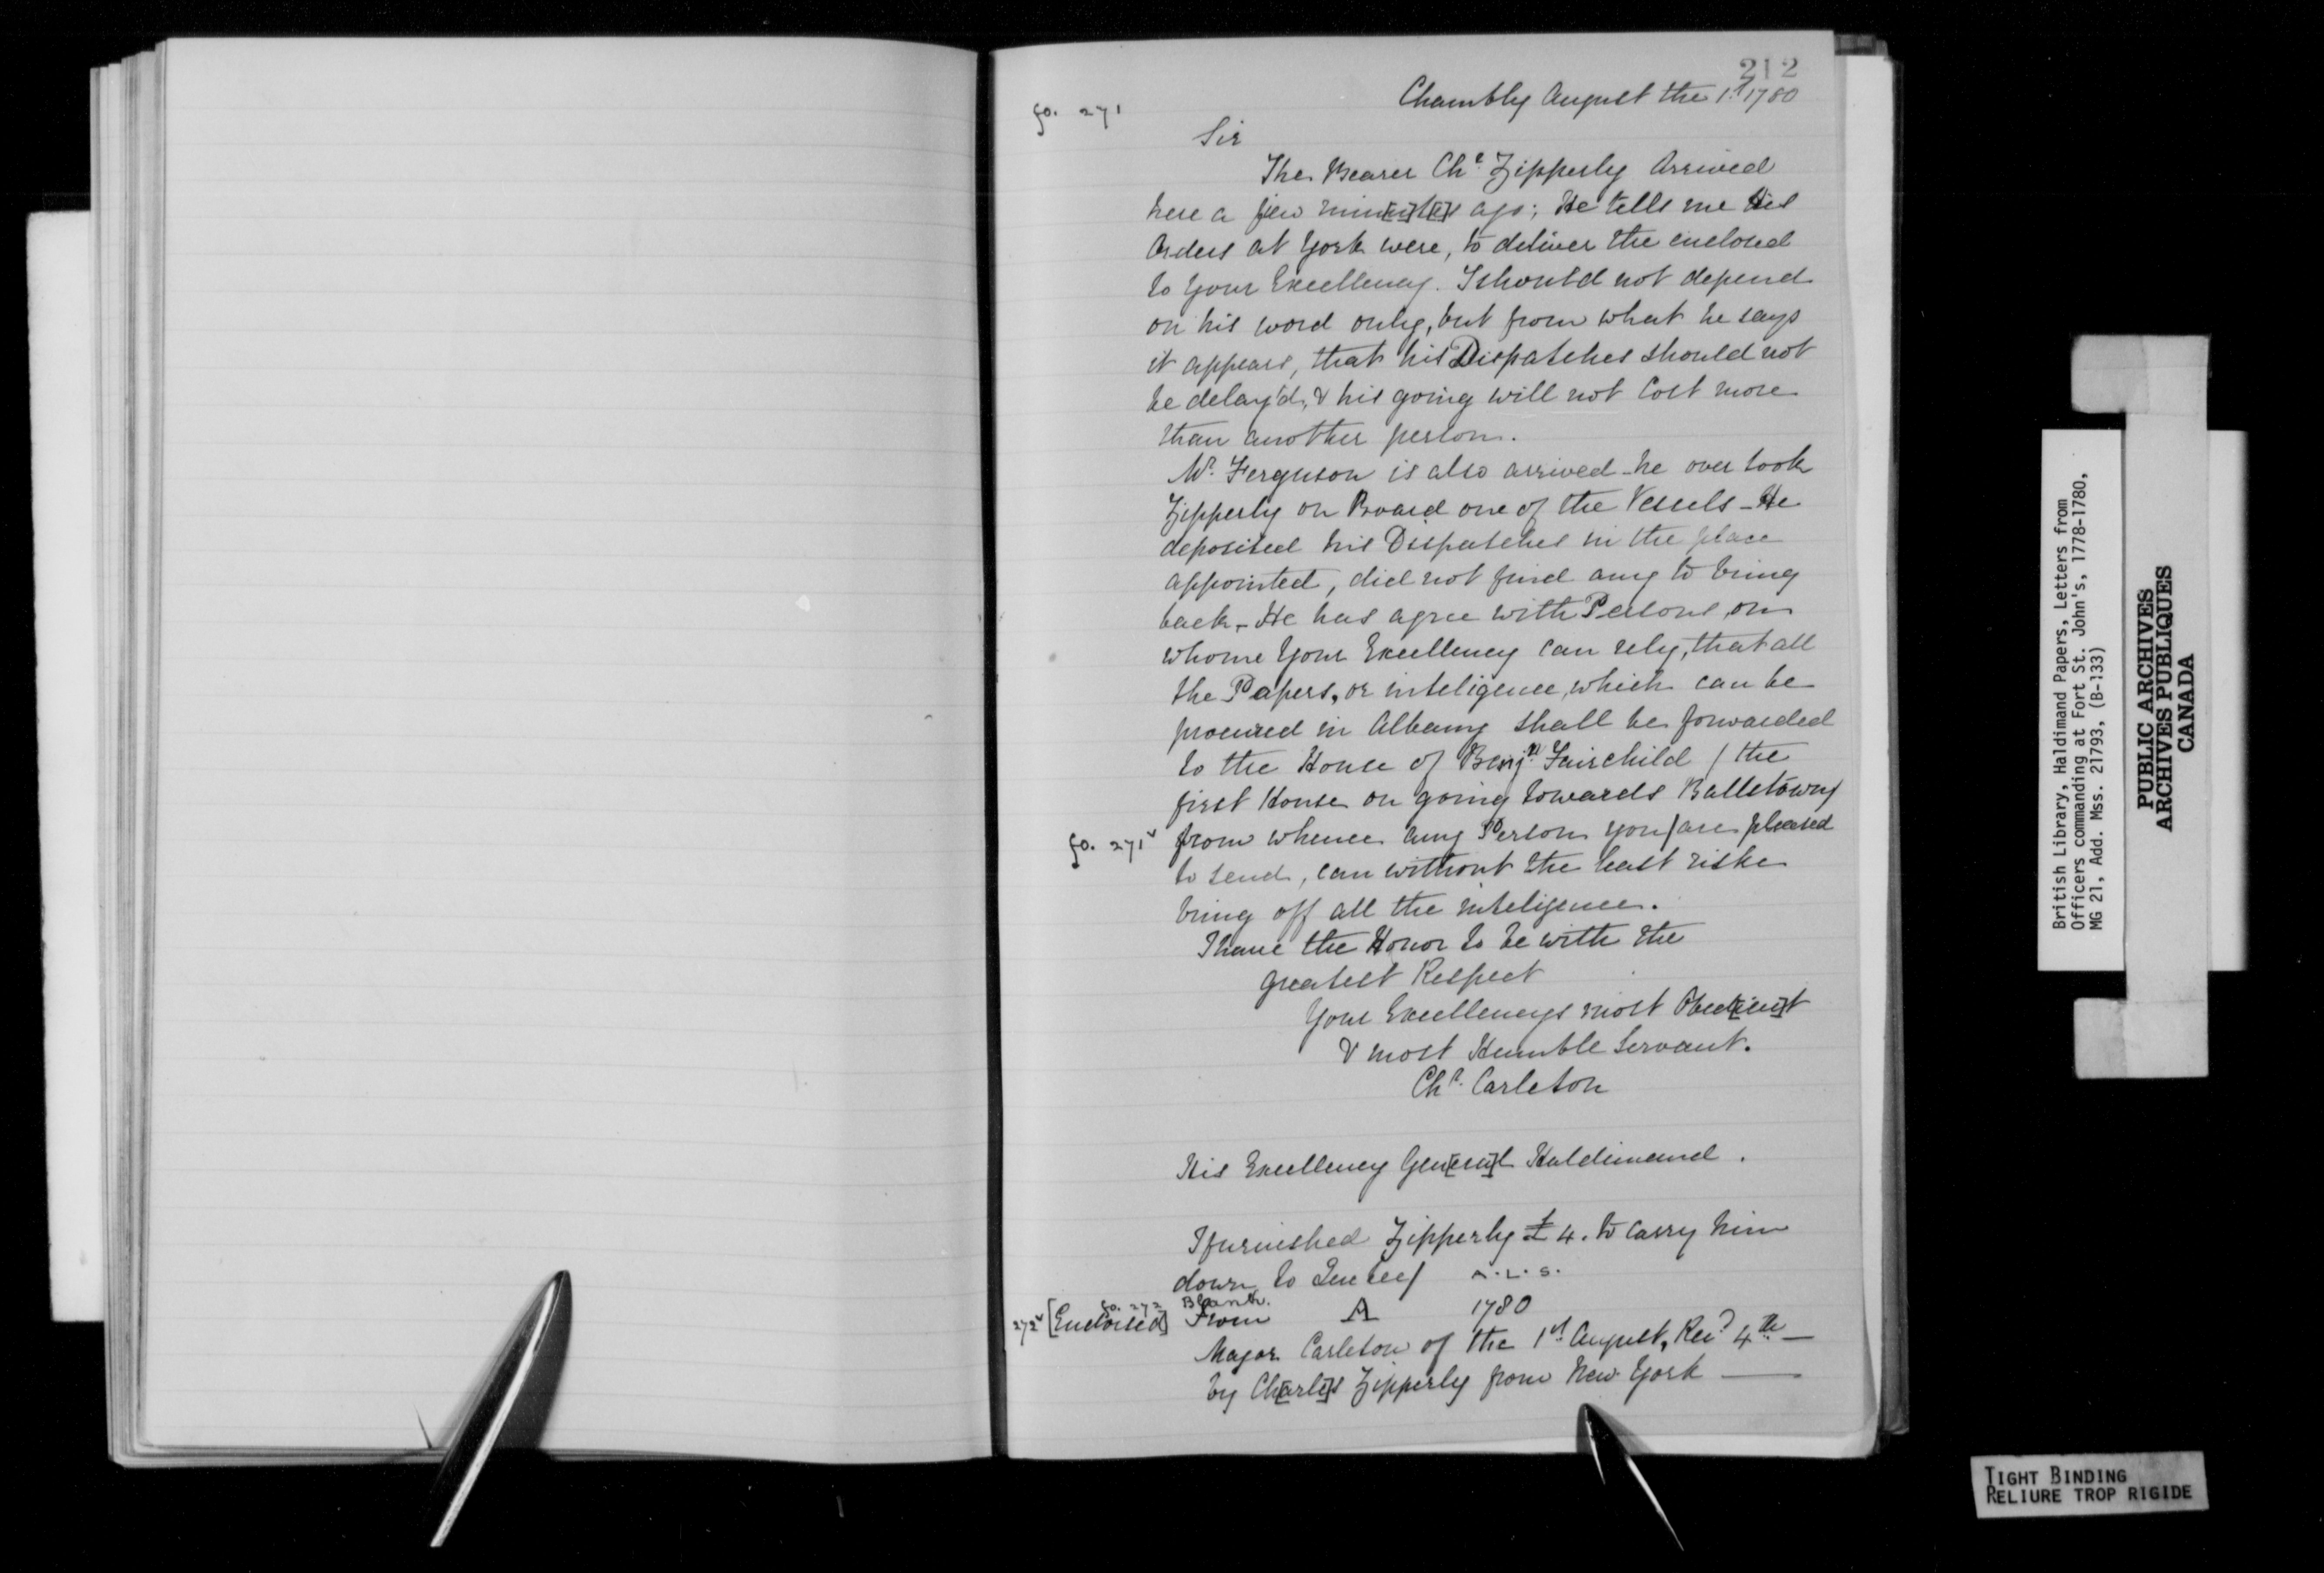 212
Chambly August the 1st 1780
fo. 271
Sir
The Bearer Chs Zipperly Arrived
here a few min[u]t[e]s ago; He tells me His
Orders at York were, to deliver the enclosed
to Your Excellency. I should not depend
on his word only, but from what he says
it appears, that his Dispatches should not
be delay'd, & his going will not Cost more
than another person.
Mr. Ferguson is also arrived - he over took
Zipperly on Board one of the Vessels - He
deposited his Dispatches in the place
appointed, did not find any to bring
back - He has agree with Persons, on
whome Your Excellency can rely, that all
the Papers, or inteligence, which can be
procured in Albany shall be forwarded
to the House of Benjn. Fairchild / the
first House on going towards Ballstown/
fo. 271v from whence any Person you/are pleased
to send, can without the least riske
bring off all the inteligence.
I have the Honor to be with the
greatest Respect
Your Excellencys most Obed[ien]t
& most Humble Servant.
Chr. Carleton
His Excellency Gen[era]l Haldimand.
I furnished Zipperly £4. to carry him
down to Quebec/ A.L.S.
fo. 272 Blank.
272v [Endorsed] From A 1780
Major Carleton of the 1st August, Recd 4th —
by Ch[arle]s Zipperly from New York —
British Library, Haldimand Papers, Letters from
Officers commanding at Fort St. John's, 1778-1780,
MG 21, Add. Mss. 21793, (B-133)
PUBLIC ARCHIVES
ARCHIVES PUBLIQUES
CANADA
TIGHT BINDING
RELIURE TROP RIGIDE